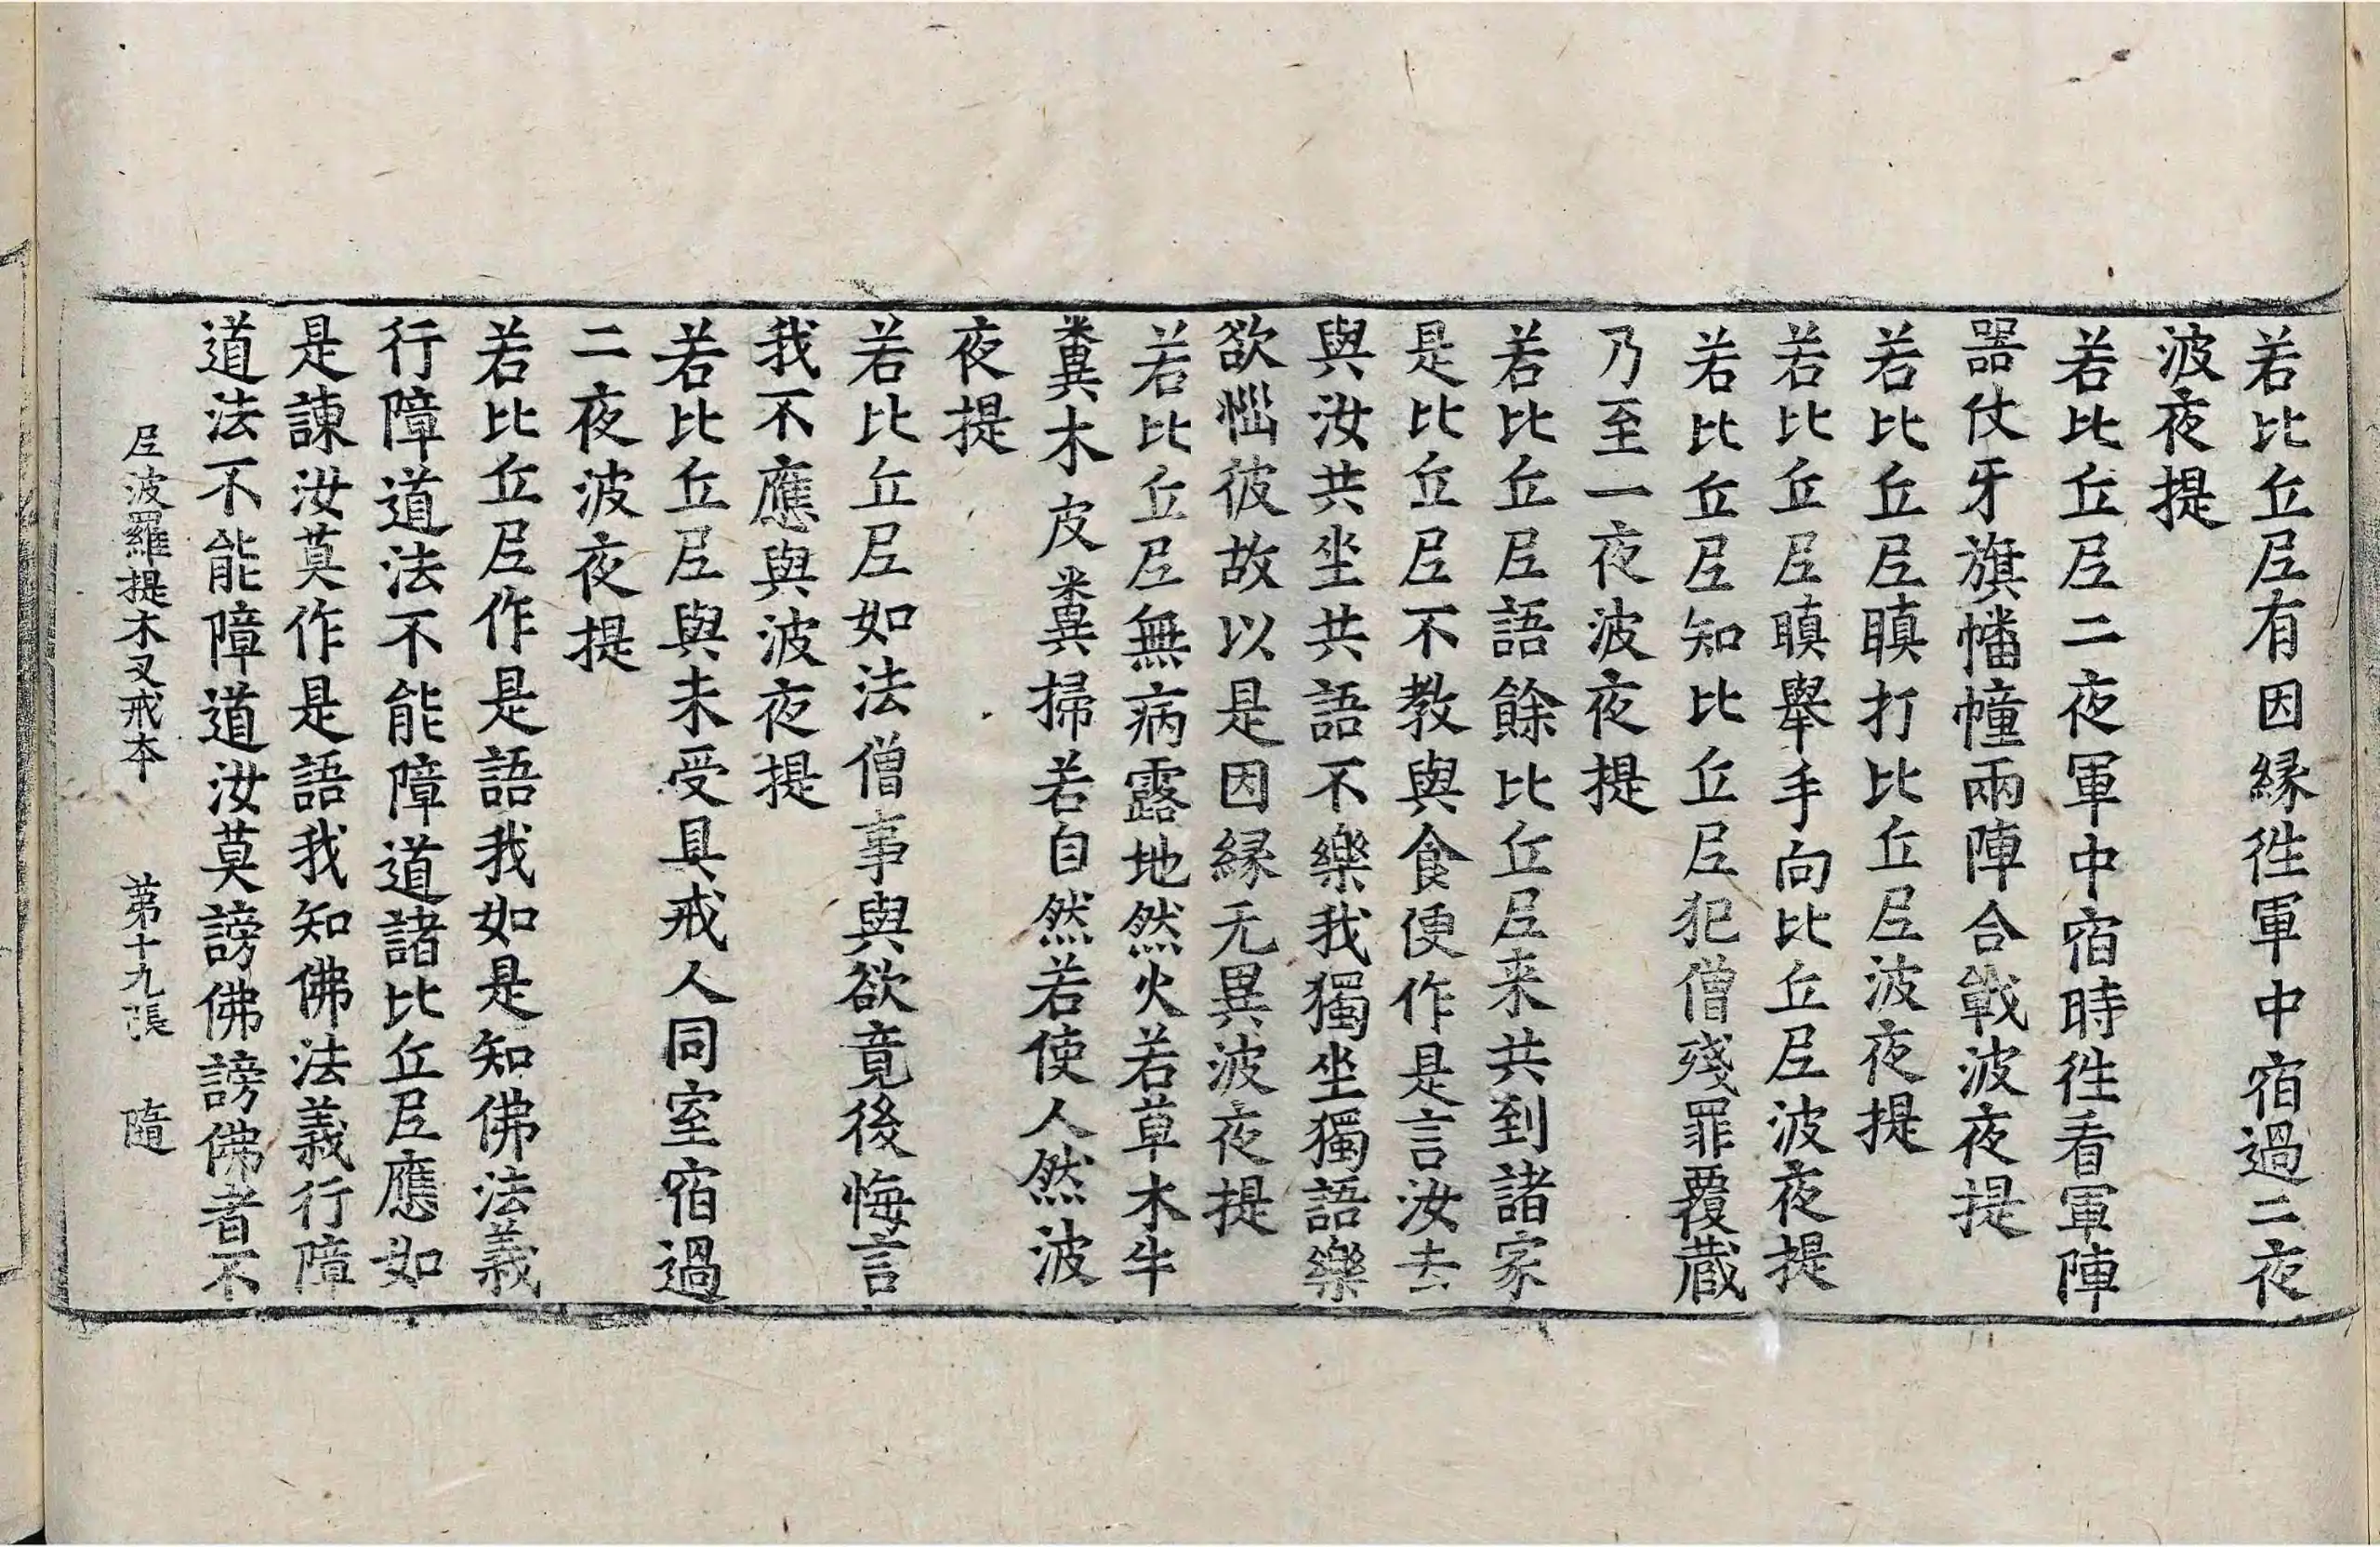 若比丘尼有因緣往軍中宿過二夜
波夜提
若比丘尼二夜軍中宿時往看軍陣
器仗牙旗幡幢兩陣合戰波夜提
若比丘尼瞋打比丘尼波夜提
若比丘尼瞋舉手向比丘尼波夜提
若比丘尼知比丘尼犯僧殘罪覆藏
乃至一夜波夜提
若比丘尼語餘比丘尼来共到諸家
是比丘尼不教與食便作是言汝去
與汝共坐共語不樂我獨坐獨語樂
欲惱彼故以是因緣无異波夜提
若比丘尼無病露地然火若草木牛
糞木皮糞掃若自然若使人然波
夜提
若比丘尼如法僧事與欲竟後悔言
我不應與波夜提
若比丘尼與未受具戒人同室宿過
二夜波夜提
若比丘尼作是語我如是知佛法義
行障道法不能障道諸比丘尼應如
是諫汝莫作是語我知佛法義行障
道法不能障道汝莫謗佛謗佛者不
尼波羅提木叉戒本 第十九張 隨